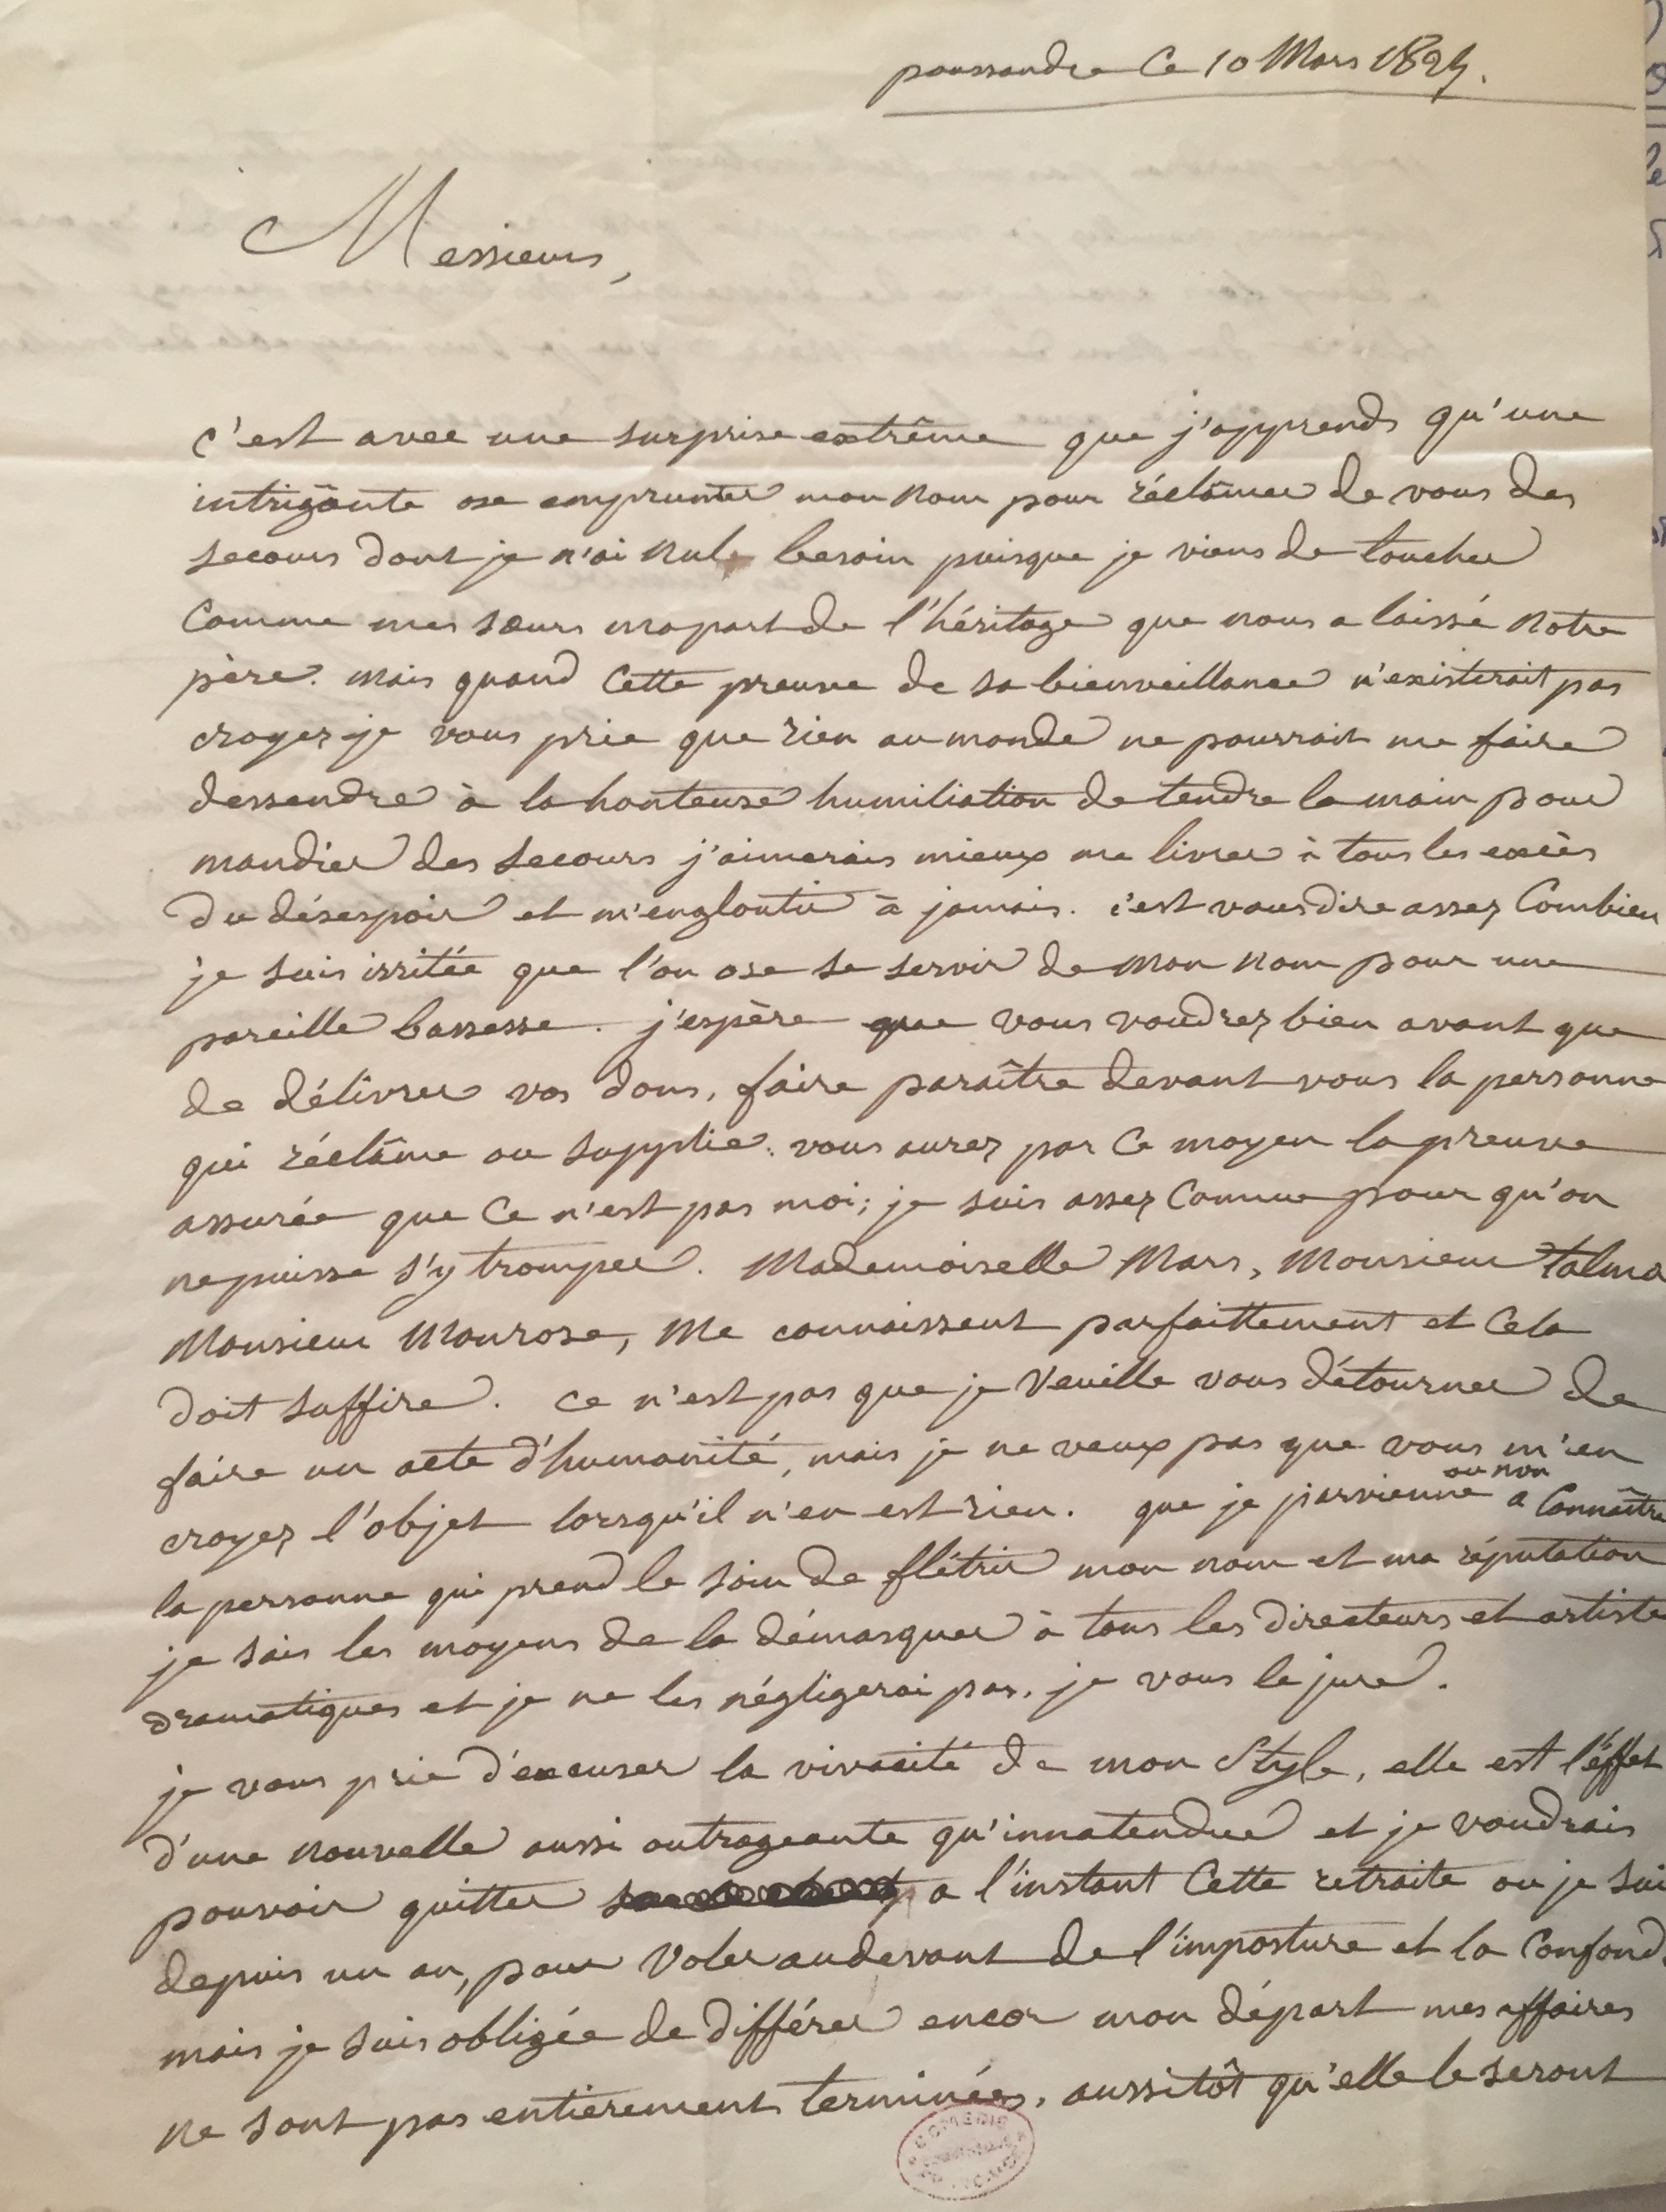 poussandre Ce 10 Mars 1824.
Messieurs,
c'est avec une surprise extrême que j'apprends qu'une
intrigante ose emprunter mon Nom pour réclâmer de vous des
secours dont je n'ai Nul besoin puisque je viens de toucher
Comme mes sœurs ma part de l'héritage que nous a laissé Notre
père. mais quand Cette preuve de sa bienveillance n'existerait pas
croyez-je vous prie que rien au monde ne pourrait me faire
dessendre à la honteuse humiliation de tendre la main pour
mandier des secours j'aimerais mieux me livrer à tous les excès
du désespoir et m'engloutir à jamais. c'est vous dire assez Combien
je suis irritée que l'on ose se servir de mon Nom pour une
pareille bassesse. j'espère que vous voudrez bien avant que
de délivrer vos dons, faire paraître devant vous la personne
qui réclâme ou supplie. vous aurez par Ce moyen la preuve
assurée que Ce n'est pas moi; je suis assez Connue pour qu'on
ne puisse s'y tromper. Mademoiselle Mars, Monsieur talma
Monsieur Monrose, Me connaissent parfaittement et Cela
doit suffire. Ce n'est pas que je Veuille vous détourner de
faire un acte d'humanité, mais je ne veux pas que vous m'en
croyez l'objet lorsqu'il n'en est rien. que je parvienne ou non a Connaître
la personne qui prend le soin de flétrir mon nom et ma réputation
je sais les moyens de la démasquer à tous les directeurs et artiste
dramatiques et je ne les négligerai pas. je vous le jure.
je vous prie d'excuser la vivacité de mon Style, elle est l'éffet
d'une Nouvelle aussi outrageante qu'innatendue et je voudrais
pouvoir quitter a l'instant Cette retraite ou je sui
depuis un an, pour Voler audevant de l'imposture et la Confond
mais je suis obligée de différer encor mon départ mes affaires
Ne sont pas entièrement terminées. aussitôt qu'elle le seront